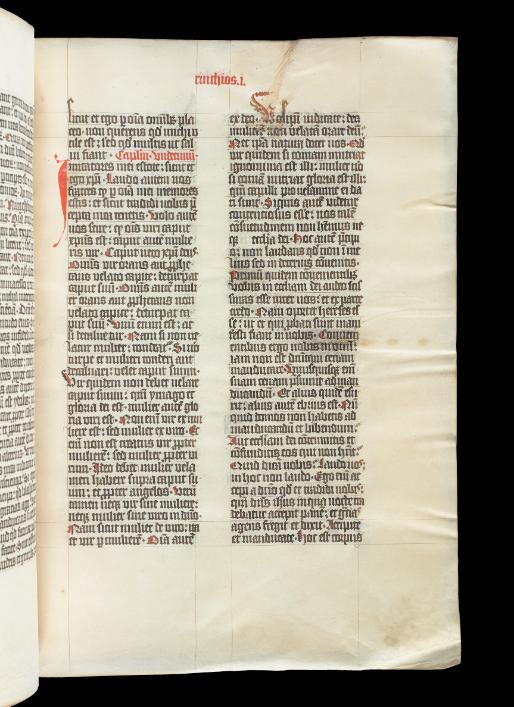 rinthios.i.
sicut et ego p oia oibus pla
ceo: non querens qd michi v
tile est: sed qd multis ut sal
ui fiant. Caplm vndecimu.
Imitatores mei estote: sicut et
ego xpi. Laudo autem vos
fratres q p oia mei memores
estis: et sicut tradidi vobis p
cepta mea tenetis. Volo aute
vos scire: q ois viri caput
xpus est: caput aute mulie
ris vir. Caput vero xpi deus.
Omis vir orans aut pphe
tans velato capite: deturpat
caput suu. Omis aute muli
er orans aut pphetans non
velato capite: deturpat ca
put suu. Vnu enim est: ac
si decaluetur. Nam si non ve
latur mulier: tondeatur. Si vo
turpe est mulieri tonderi aut
decaluari: velet caput suum.
Vir quidem non debet velare
caput suum: qm ymago et
gloria dei est. mulier aute glo
ria viri est. Non eni vir ex mu
liere est: sed mulier ex viro. Et
eni non est creatus vir ppter
mulierem: sed mulier ppter vi
rum. Ideo debet mulier vela
men habere supra caput su
um: et ppter angelos. Veru
tamen neq vir sine muliere:
neq mulier sine viro in dno.
Nam sicut mulier de viro: ita
et vir p mulierem. Oia aute
ex deo. Vos ipi iudicate: decet
mulierem non velatam orare deu.
Nec ipa natura docet vos. qd
vir quidem si comam nutriat
ignominia est illi: mulier vo
si comam nutriat gloria est illi:
qm capilli pro velamine ei da
ti sunt. Siquis aute videtur
contenciosus esse: nos talem
consuetudinem non habemus ne
q ecclia dei. Hoc aute precipi
o: non laudans qd non in me
lius sed in deterius conuenitis.
Primum quidem conuenientibus
vobis in ecclesiam dei audio scis
suras esse inter vos: et ex parte
credo. Nam oportet hereses es
se: ut et qui pbati sunt mani
festi fiant in vobis. Conueni
entibus ergo vobis in vnu:
iam non est dnicam cenam
manducare. Vnusquisq eni
suam cenam psumit ad man
ducandu. Et alius quide esu
rit: alius aute ebrius est. Nu
quid domos non habetis ad
manducandu et bibendum:
Aut ecclesiam dei contemnitis et
confunditis eos qui non hnt:
Quid dicam vobis: Laudo vos:
in hoc non laudo. Ego eni ac
cepi a dno qd et tradidi vobis:
qm dns ihsus in qua nocte tra
debatur accepit pane: et gras
agens fregit et dixit. Accipite
et manducate. hoc est corpus